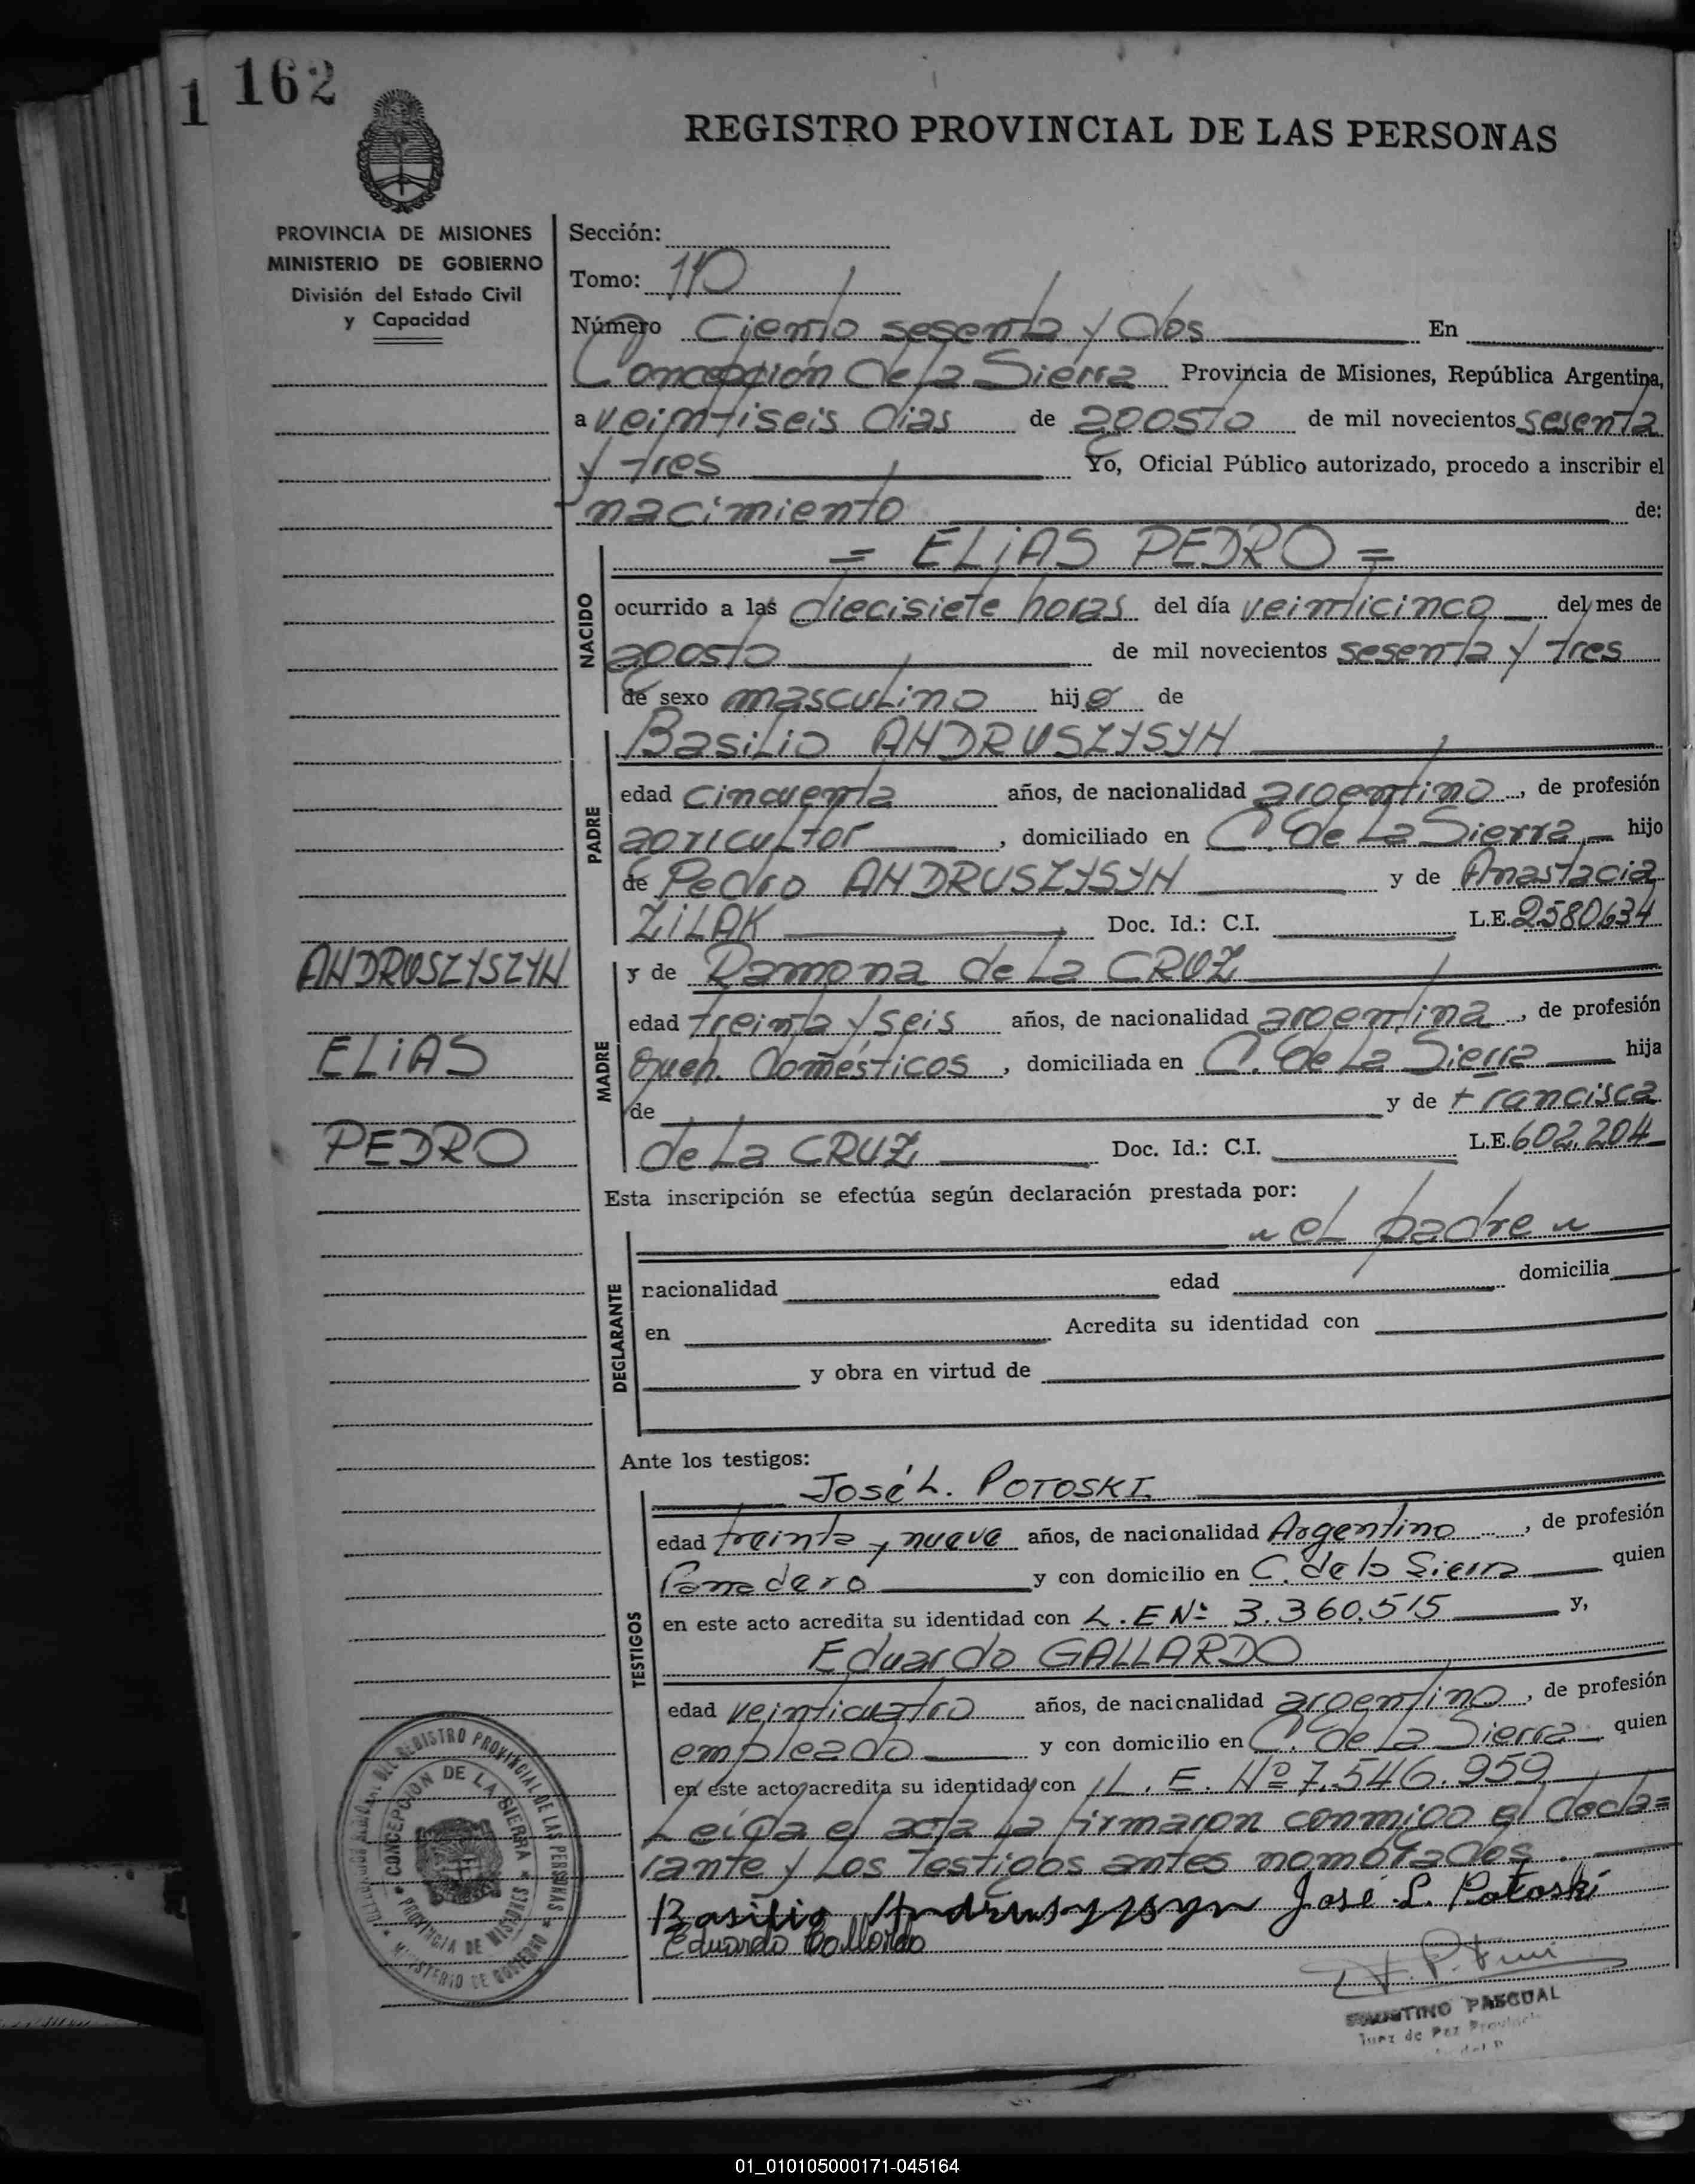 1 162
REGISTRO PROVINCIAL DE LAS PERSONAS
PROVINCIA DE MISIONES
MINISTERIO DE GOBIERNO
División del Estado Civil
y Capacidad
Sección:
Tomo: 110
Número Ciento sesenta y dos En
Concepción de la Sierra Provincia de Misiones, República Argentina,
a veintiseis dias de agosto de mil novecientos sesenta
y tres Yo, Oficial Público autorizado, procedo a inscribir el
nacimiento de:
= ELiAS PEDRO =
NACIDO
ocurrido a las diecisiete horas del día veinticinco del mes de
agosto de mil novecientos sesenta y tres
de sexo masculino hijo de
Basilio ANDRUSZYSYN
PADRE
edad cincuenta años, de nacionalidad argentino, de profesión
agricultor, domiciliado en C. de La Sierra hijo
de Pedro ANDRUSZYSYN y de Anastacia
ZiLAK Doc. Id.: C.I. L.E. 2580634
ANDRUSZYSZYN
ELiAS
PEDRO
y de Ramona de La CRUZ
MADRE
edad treinta y seis años, de nacionalidad argentina, de profesión
queh. domésticos, domiciliada en C. de La Sierra hija
de y de Francisca
de La CRUZ Doc. Id.: C.I. L.E. 602.204
Esta inscripción se efectúa según declaración prestada por:
" eL padre "
DECLARANTE
nacionalidad edad domicilia
en Acredita su identidad con
y obra en virtud de
Ante los testigos:
José L. POTOSKI
TESTIGOS
edad treinta y nueve años, de nacionalidad Argentino, de profesión
Panadero y con domicilio en C. de la Sierra quien
en este acto acredita su identidad con L.E Nº 3.360.515 y,
Eduardo GALLARDO
edad veinticuatro años, de nacionalidad argentino, de profesión
empleado y con domicilio en C. de La Sierra quien
en este acto acredita su identidad con L.E. Nº 7.546.959
Leída el acta la firmaron conmigo el decla=
rante y Los testigos antes nombrados.
Basilio Andrusyysyn José L. Potoski
Eduardo Gallardo
REGISTRO PROVINCIAL DE LAS PERSONAS
CONCEPCION DE LA SIERRA
PROVINCIA DE MISIONES
MINISTERIO DE GOBIERNO
PASCUAL
Juez de Paz
01_010105000171-045164